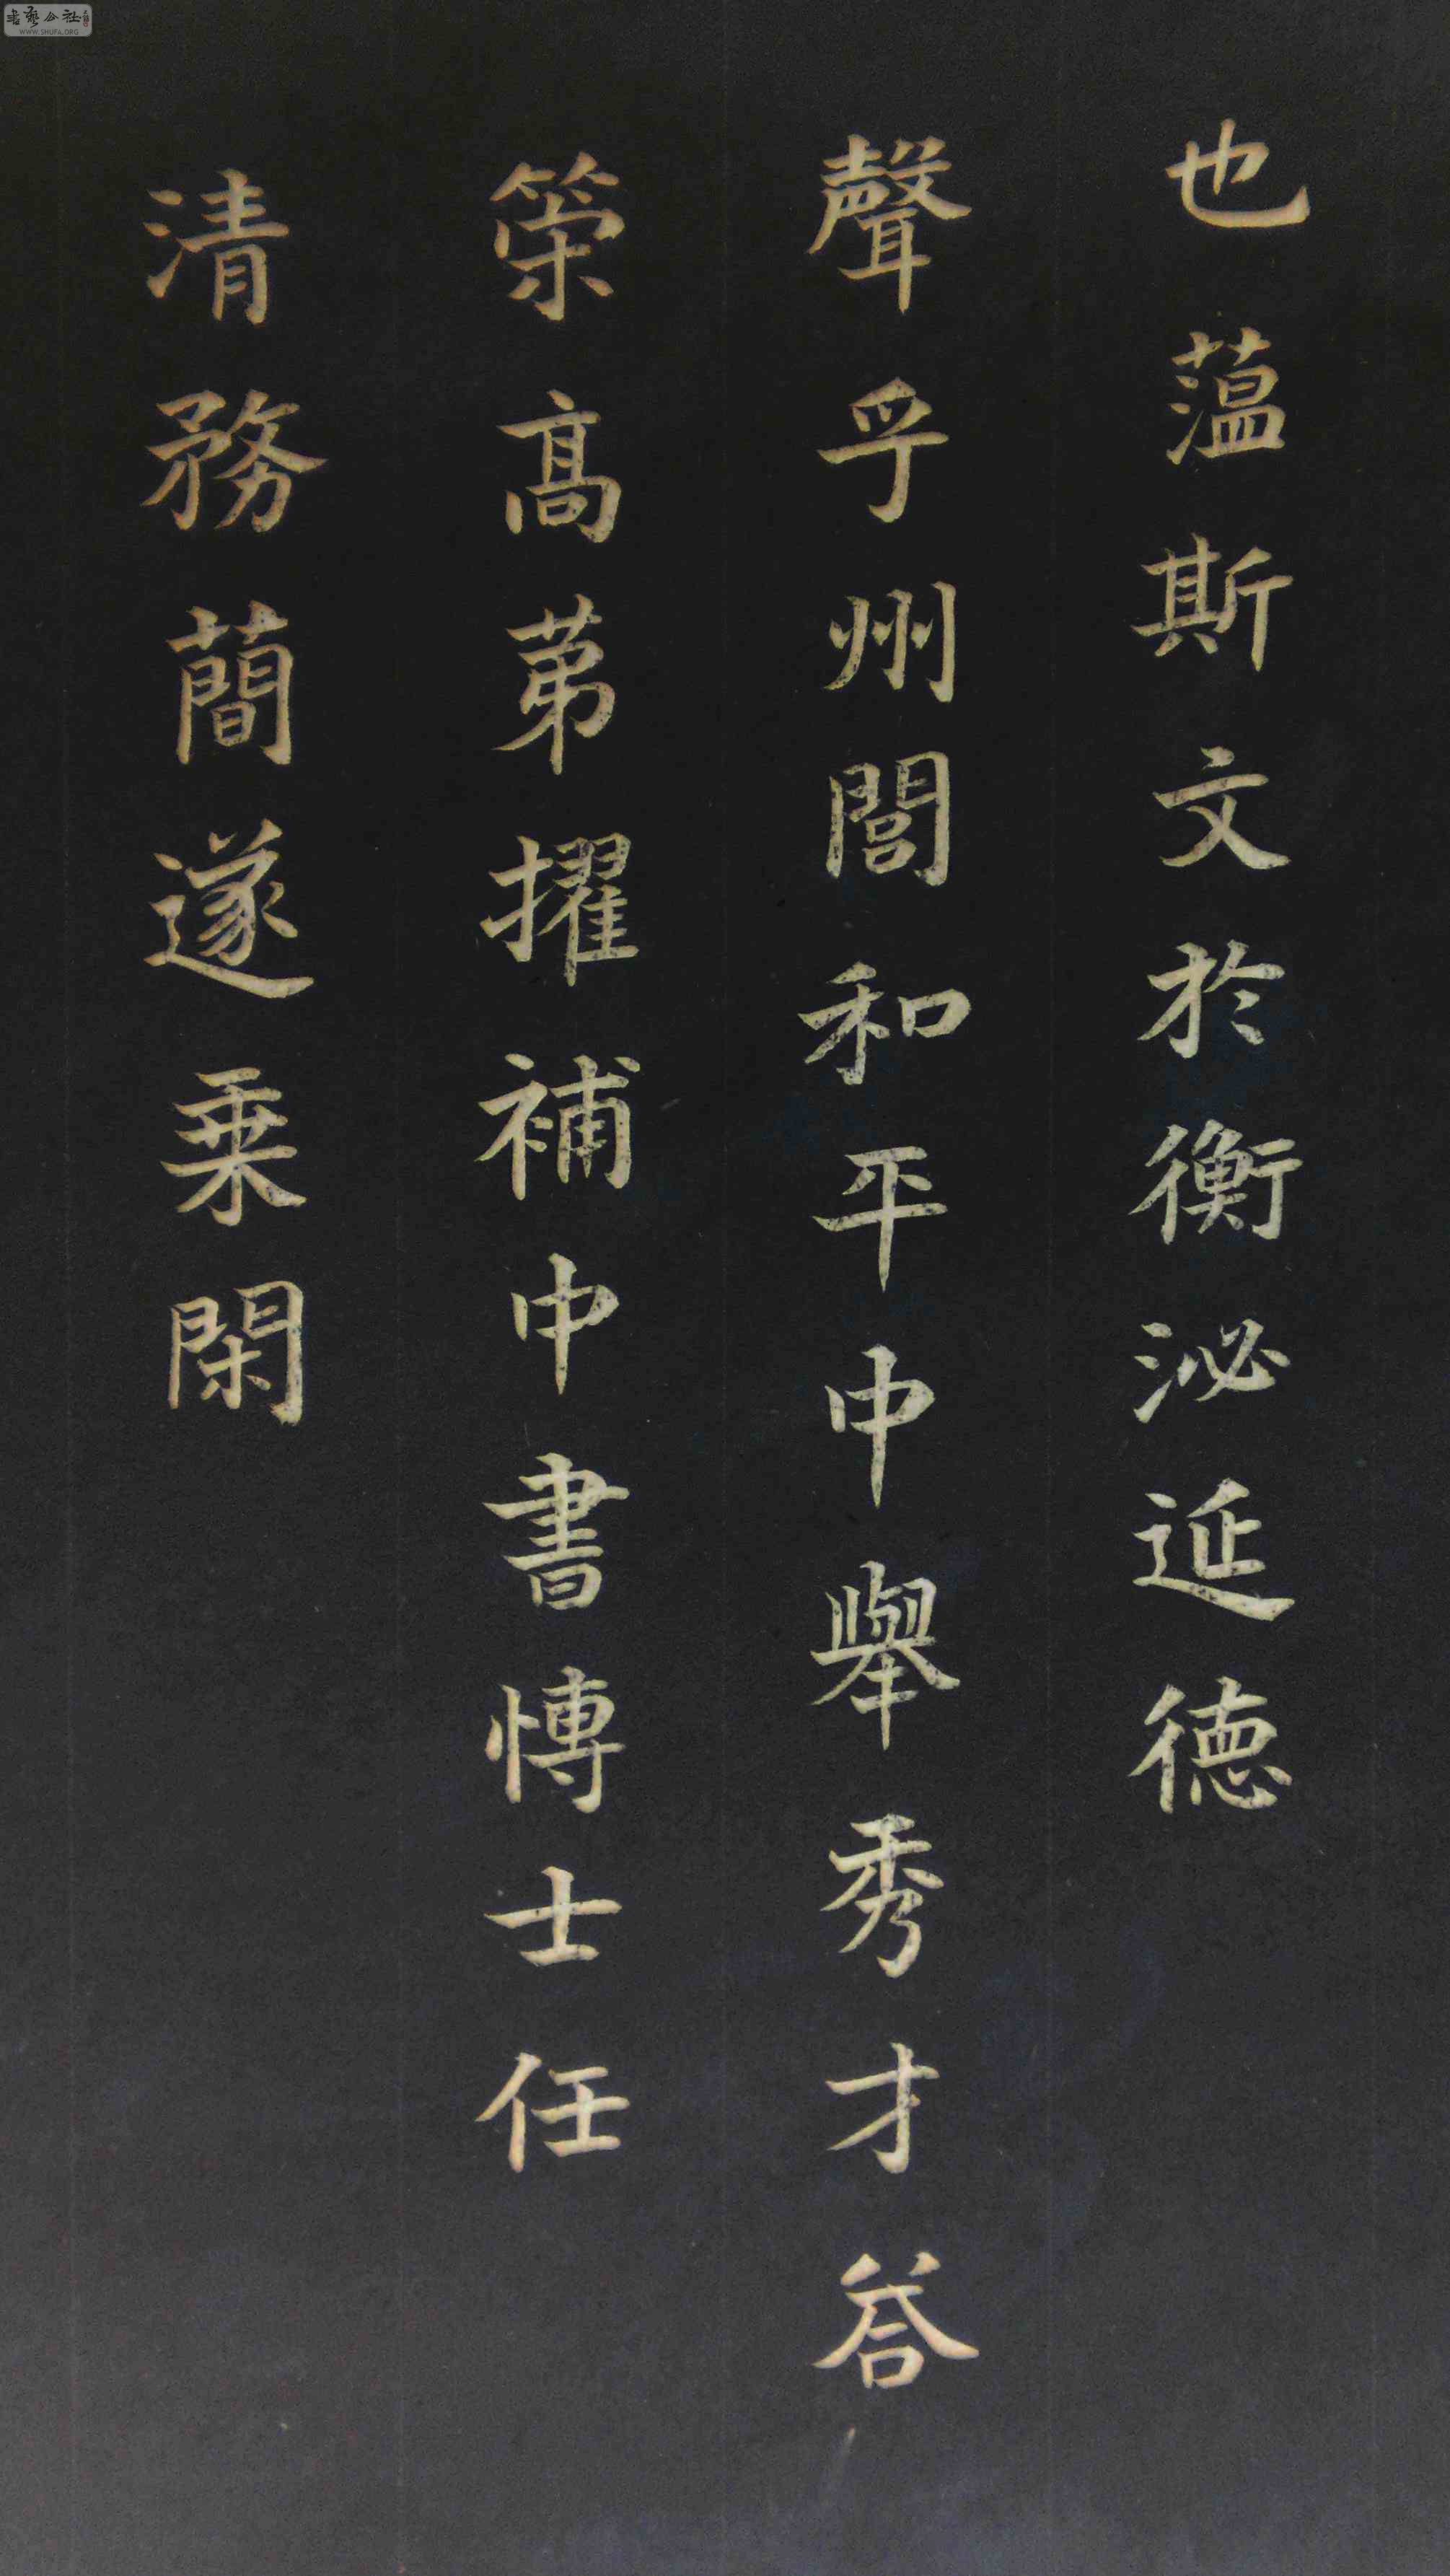 也薀斯文於衡泌延德
聲乎州閭和平中舉秀才荅
策高苐擢補中書博士任
清務蕳遂乗閑
書藝公社
WWW.SHUFA.ORG